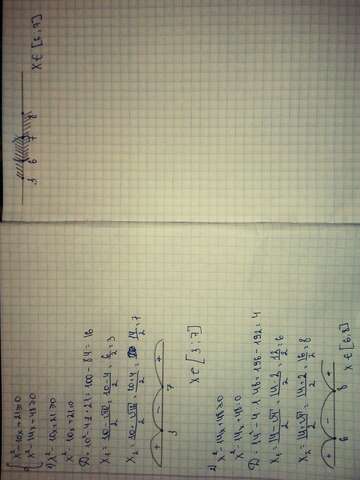 x² - 10x + 21 ≤ 0
x² - 14x + 48 ≤ 0
1) x² - 10x + 21 ≤ 0
x² - 10x + 21 = 0
D = 10² - 4 · 21 = 100 - 84 = 16
x₁ = (10 - √16)/2 = (10 - 4)/2 = 6/2 = 3
x₂ = (10 + √16)/2 = (10 + 4)/2 = 14/2 = 7
+ - +
3 7
x ∈ [3; 7]
2) x² - 14x + 48 ≤ 0
x² - 14x + 48 = 0
D = 14² - 4 · 1 · 48 = 196 - 192 = 4
x₁ = (14 - √4)/2 = (14 - 2)/2 = 12/2 = 6
x₂ = (14 + √4)/2 = (14 + 2)/2 = 16/2 = 8
+ - +
6 8
x ∈ [6; 8]
3 6 7 8
x ∈ [6; 7]